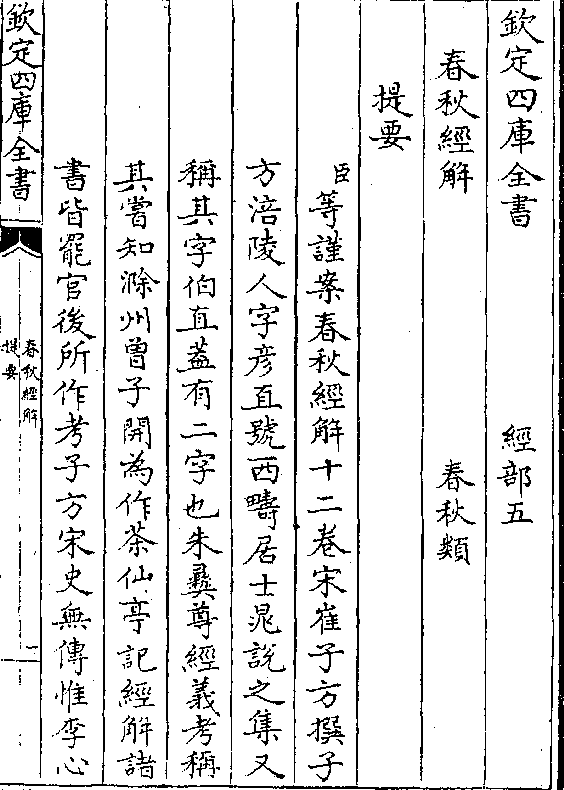 欽定四庫全書 經部五
春秋經解 春秋類
提要
臣等謹案春秋經解十二卷宋崔子方撰子
方涪陵人字彦直號西疇居士晁說之集又
稱其字伯直蓋有二字也朱彝尊經義考稱
其嘗知滁州曾子開為作茶仙亭記經解諸
書皆罷官後所作考子方宋史無傳惟李心
欽定四庫全書
春秋經解
提要
一